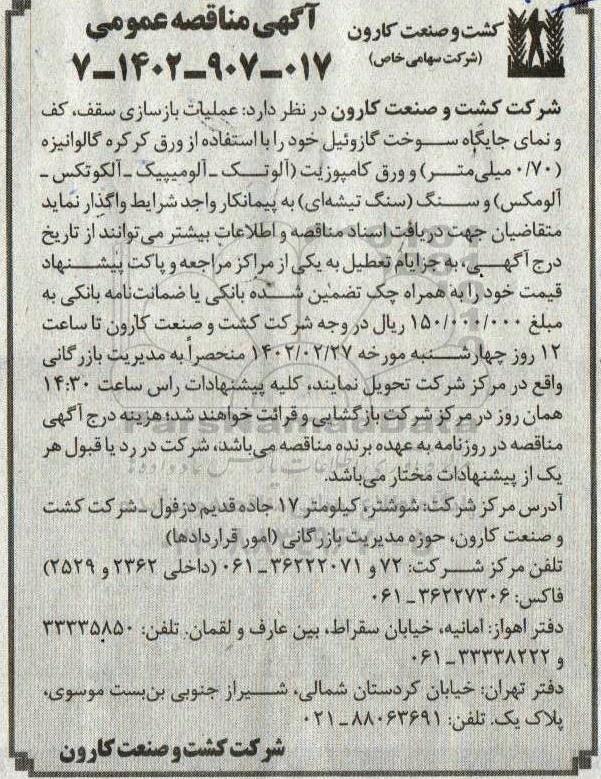 آگهی مناقصه عمومی
۷-۱۴۰۲-۹۰۷-۰۱۷
کشت و صنعت کارون
(شرکت سهامی خاص)
شرکت کشت و صنعت کارون در نظر دارد: عملیات بازسازی سقف، کف
و نمای جایگاه سوخت گازوئیل خود را با استفاده از ورق کرکره گالوانیزه
(۰/۷۰ میلی‌متر) و ورق کامپوزیت (آلوتک ـ آلومیپیک ـ آلکوتکس ـ
آلومکس) و سنگ (سنگ تیشه‌ای) به پیمانکار واجد شرایط واگذار نماید
متقاضیان جهت دریافت اسناد مناقصه و اطلاعات بیشتر می‌توانند از تاریخ
درج آگهی، به جز ایام تعطیل به یکی از مراکز مراجعه و پاکت پیشنهاد
قیمت خود را به همراه چک تضمین شده بانکی یا ضمانت‌نامه بانکی به
مبلغ ۱۵۰/۰۰۰/۰۰۰ ریال در وجه شرکت کشت و صنعت کارون تا ساعت
۱۲ روز چهارشنبه مورخه ۱۴۰۲/۰۲/۲۷ منحصراً به مدیریت بازرگانی
واقع در مرکز شرکت تحویل نمایند، کلیه پیشنهادات راس ساعت ۱۴:۳۰
همان روز در مرکز شرکت بازگشایی و قرائت خواهند شد؛ هزینه درج آگهی
مناقصه در روزنامه به عهده برنده مناقصه می‌باشد، شرکت در رد یا قبول هر
یک از پیشنهادات مختار می‌باشد.
آدرس مرکز شرکت: شوشتر، کیلومتر ۱۷ جاده قدیم دزفول ـ شرکت کشت
و صنعت کارون، حوزه مدیریت بازرگانی (امور قراردادها)
تلفن مرکز شرکت: ۷۲ و ۳۶۲۲۲۰۷۱ ـ ۰۶۱ (داخلی ۲۳۶۲ و ۲۵۲۹)
فاکس: ۳۶۲۲۷۳۰۶ ـ ۰۶۱
دفتر اهواز: امانیه، خیابان سقراط، بین عارف و لقمان. تلفن: ۳۳۳۳۵۸۵۰
و ۳۳۳۳۸۲۲۲ ـ ۰۶۱
دفتر تهران: خیابان کردستان شمالی، شیراز جنوبی بن‌بست موسوی،
پلاک یک. تلفن: ۸۸۰۶۳۶۹۱ ـ ۰۲۱
شرکت کشت و صنعت کارون